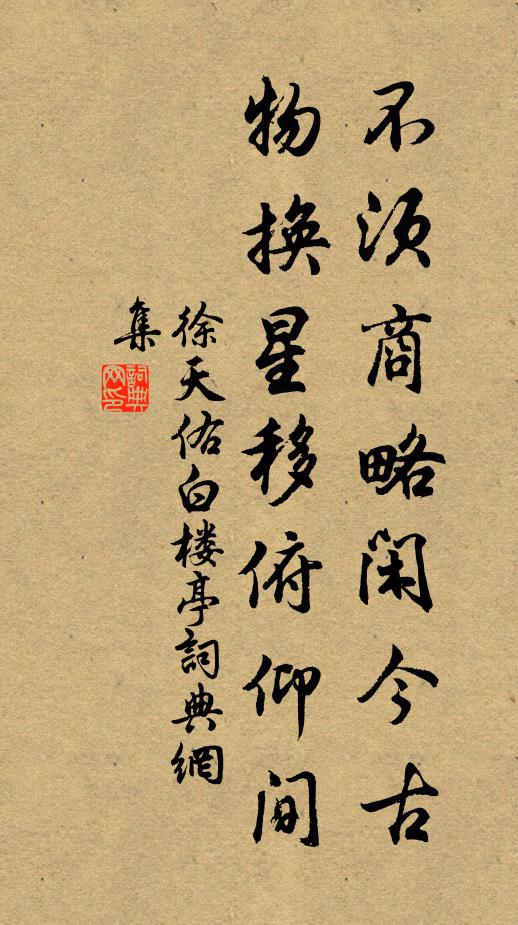 不须商略闲今古
物换星移俯仰间
徐天佑白楼亭詞典網
集
詞典
网印